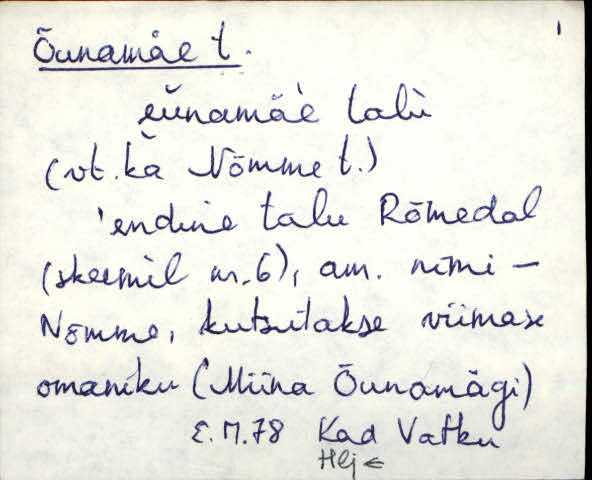 Õunamäe t.
1
eùnamäe talù
(vt. ka Nõmme t.)
'endine talu Rõmedal
(skeemil nr. 6), am. nimi –
Nõmme, kutsutakse viimase
omaniku (Miina Õunamägi)
E.M.78 Kad Vatku
Hlj ←